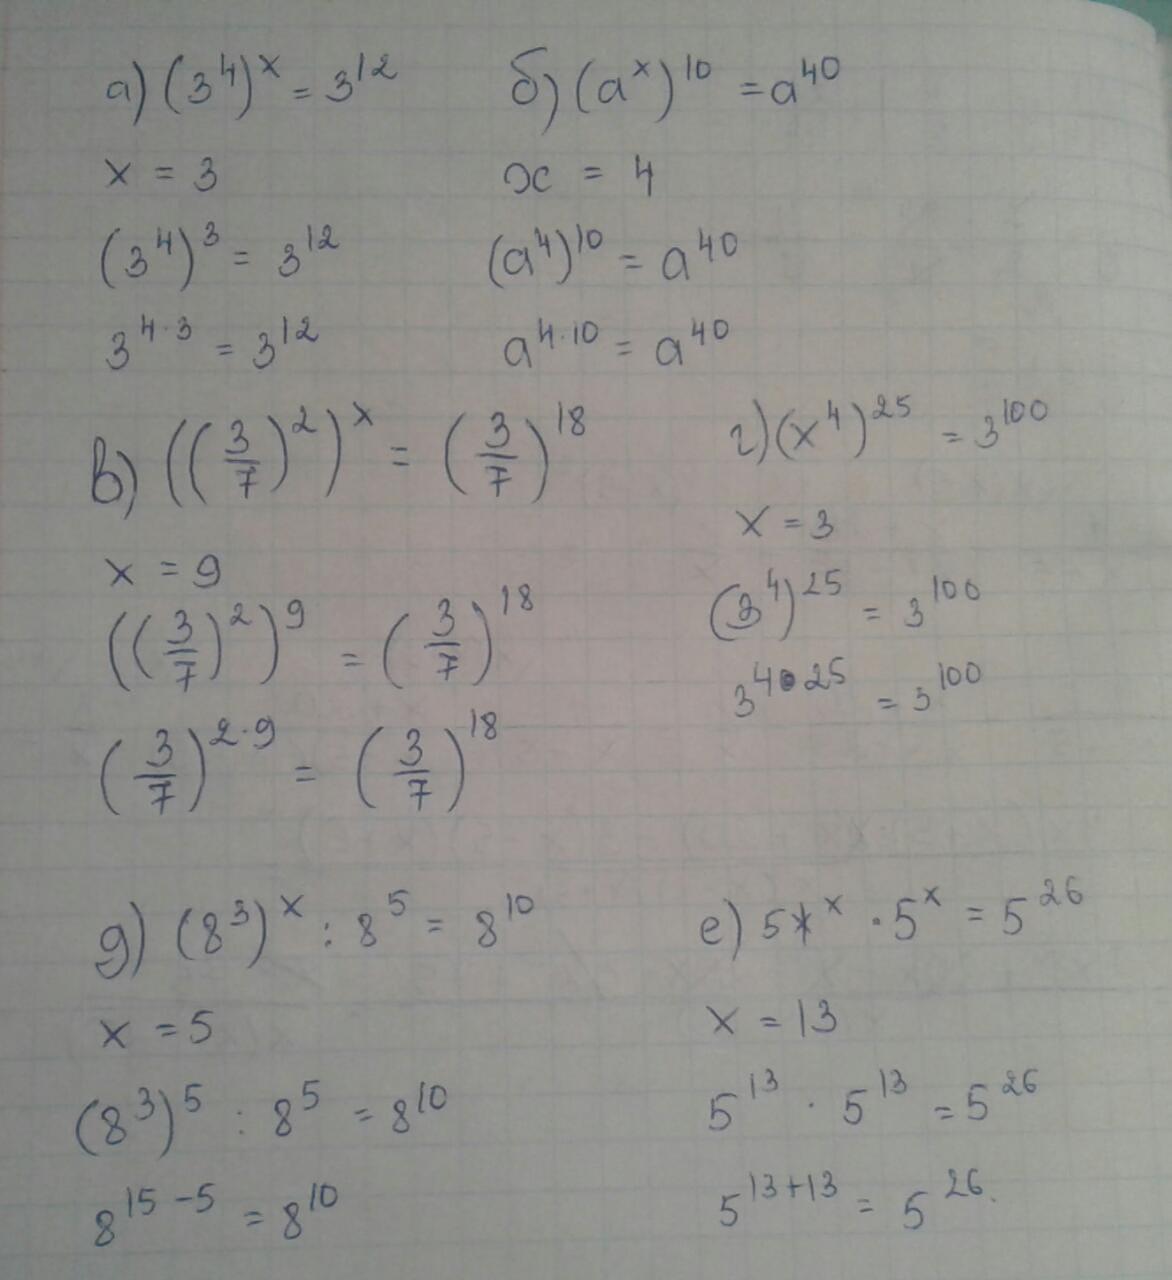 а) (3^4)^x = 3^12
x = 3
(3^4)^3 = 3^12
3^4·3 = 3^12
б) (a^x)^10 = a^40
x = 4
(a^4)^10 = a^40
a^4·10 = a^40
в) ((3/7)^2)^x = (3/7)^18
x = 9
((3/7)^2)^9 = (3/7)^18
(3/7)^2·9 = (3/7)^18
г) (x^4)^25 = 3^100
x = 3
(3^4)^25 = 3^100
3^4·25 = 3^100
д) (8^3)^x : 8^5 = 8^10
x = 5
(8^3)^5 : 8^5 = 8^10
8^15-5 = 8^10
е) 5^x · 5^x = 5^26
x = 13
5^13 · 5^13 = 5^26
5^13+13 = 5^26.